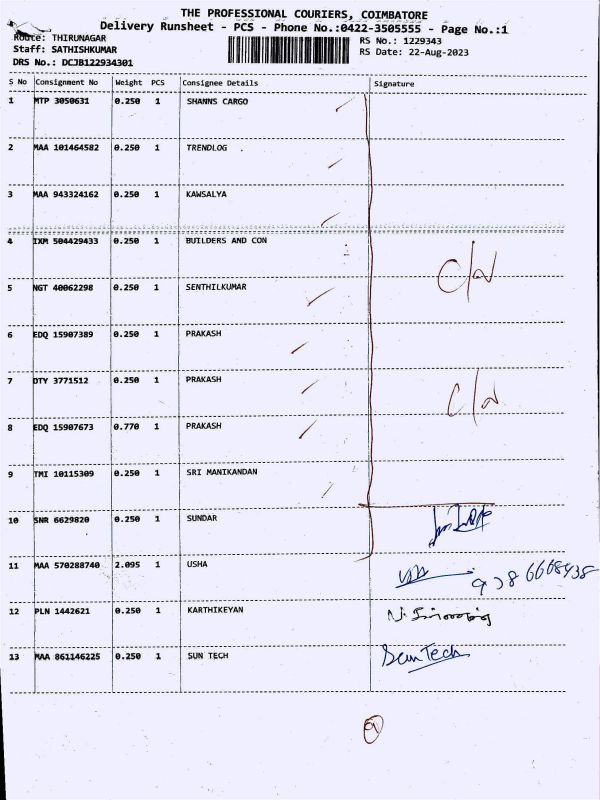 THE PROFESSIONAL COURIERS, COIMBATORE
Delivery Runsheet - PCS - Phone No.:0422-3505555 - Page No.:1
Route: THIRUNAGAR RS No.: 1229343
Staff: SATHISHKUMAR RS Date: 22-Aug-2023
DRS No.: DCJB122934301
S No Consignment No Weight PCS Consignee Details Signature
1 MTP 3050631 0.250 1 SHANNS CARGO
2 MAA 101464582 0.250 1 TRENDLOG
3 MAA 943324162 0.250 1 KAWSALYA
4 IXM 504429433 0.250 1 BUILDERS AND CON
5 NGT 40062298 0.250 1 SENTHILKUMAR
6 EDQ 15907389 0.250 1 PRAKASH
7 DTY 3771512 0.250 1 PRAKASH
8 EDQ 15907673 0.770 1 PRAKASH
9 TMI 10115309 0.250 1 SRI MANIKANDAN
10 SNR 6629820 0.250 1 SUNDAR
11 MAA 570288740 2.095 1 USHA
12 PLN 1442621 0.250 1 KARTHIKEYAN
13 MAA 861146225 0.250 1 SUN TECH Sun Tech